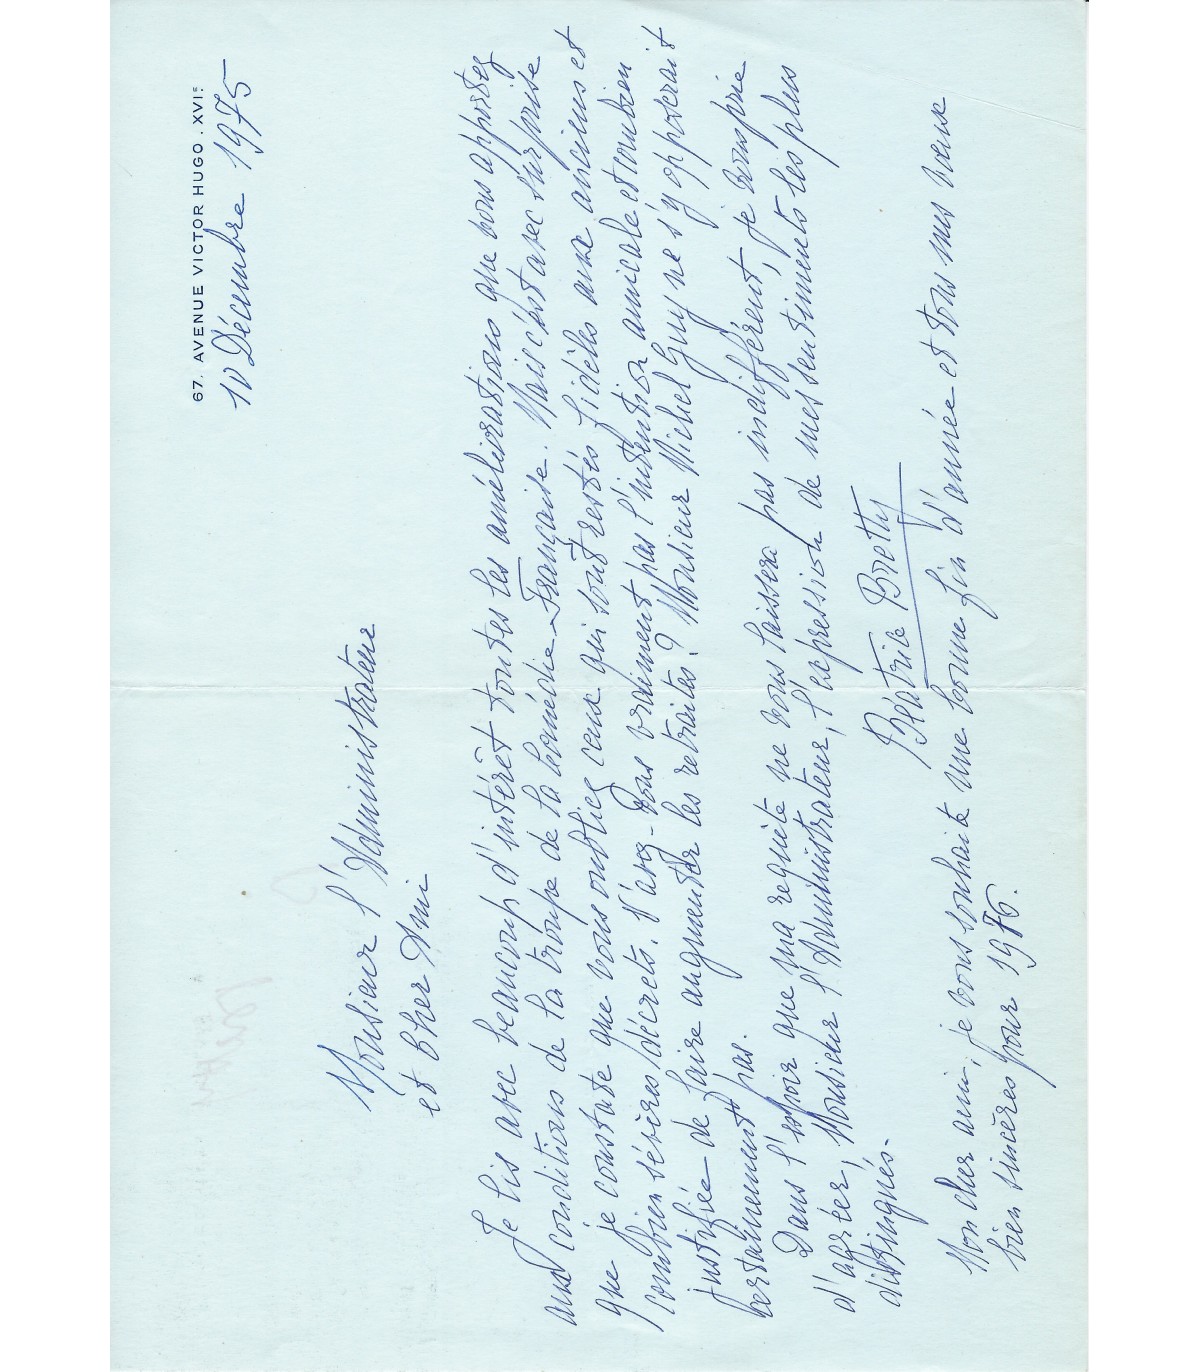 67. AVENUE VICTOR HUGO. XVIE
10 Décembre 1975
Monsieur l'Administrateur
et Cher Ami
Je lis avec beaucoup d'intérêt toutes les améliorations que vous apportez
aux conditions de la troupe de la Comédie-Française. Mais c'est avec surprise
que je constate que vous oubliez ceux qui sont restés fidèles aux anciens et
combien sévères décrets. N'avez-vous vraiment pas l'intention amicale et combien
justifiée de faire augmenter les retraites? Monsieur Michel Guy ne s'y opposerait
certainement pas.
Dans l'espoir que ma requête ne vous laissera pas indifférent, je vous prie
d'agréer, Monsieur l'Administrateur, l'expression de mes sentiments les plus
distingués.
Béatrice Bretty
Mon cher ami, je vous souhaite une bonne fin d'année et tous mes vœux
bien sincères pour 1976.